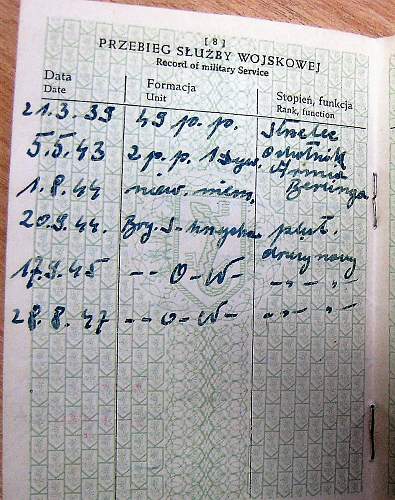 [ 8 ]
PRZEBIEG SŁUŻBY WOJSKOWEJ
Record of military Service
Data Formacja Stopień, funkcja
Date Unit Rank, function
21.3.39 49 p.p. strzelec
5.5.43 2 p.p. 1 Dyw. ochotnik
Armia
1.8.44 niew. niem. Berlinga
20.9.44. Bryg. S-
plut.
drużynowy
17.9.45 -- O - W - -„-„-
28.8.47 -- O - W - -„-„-